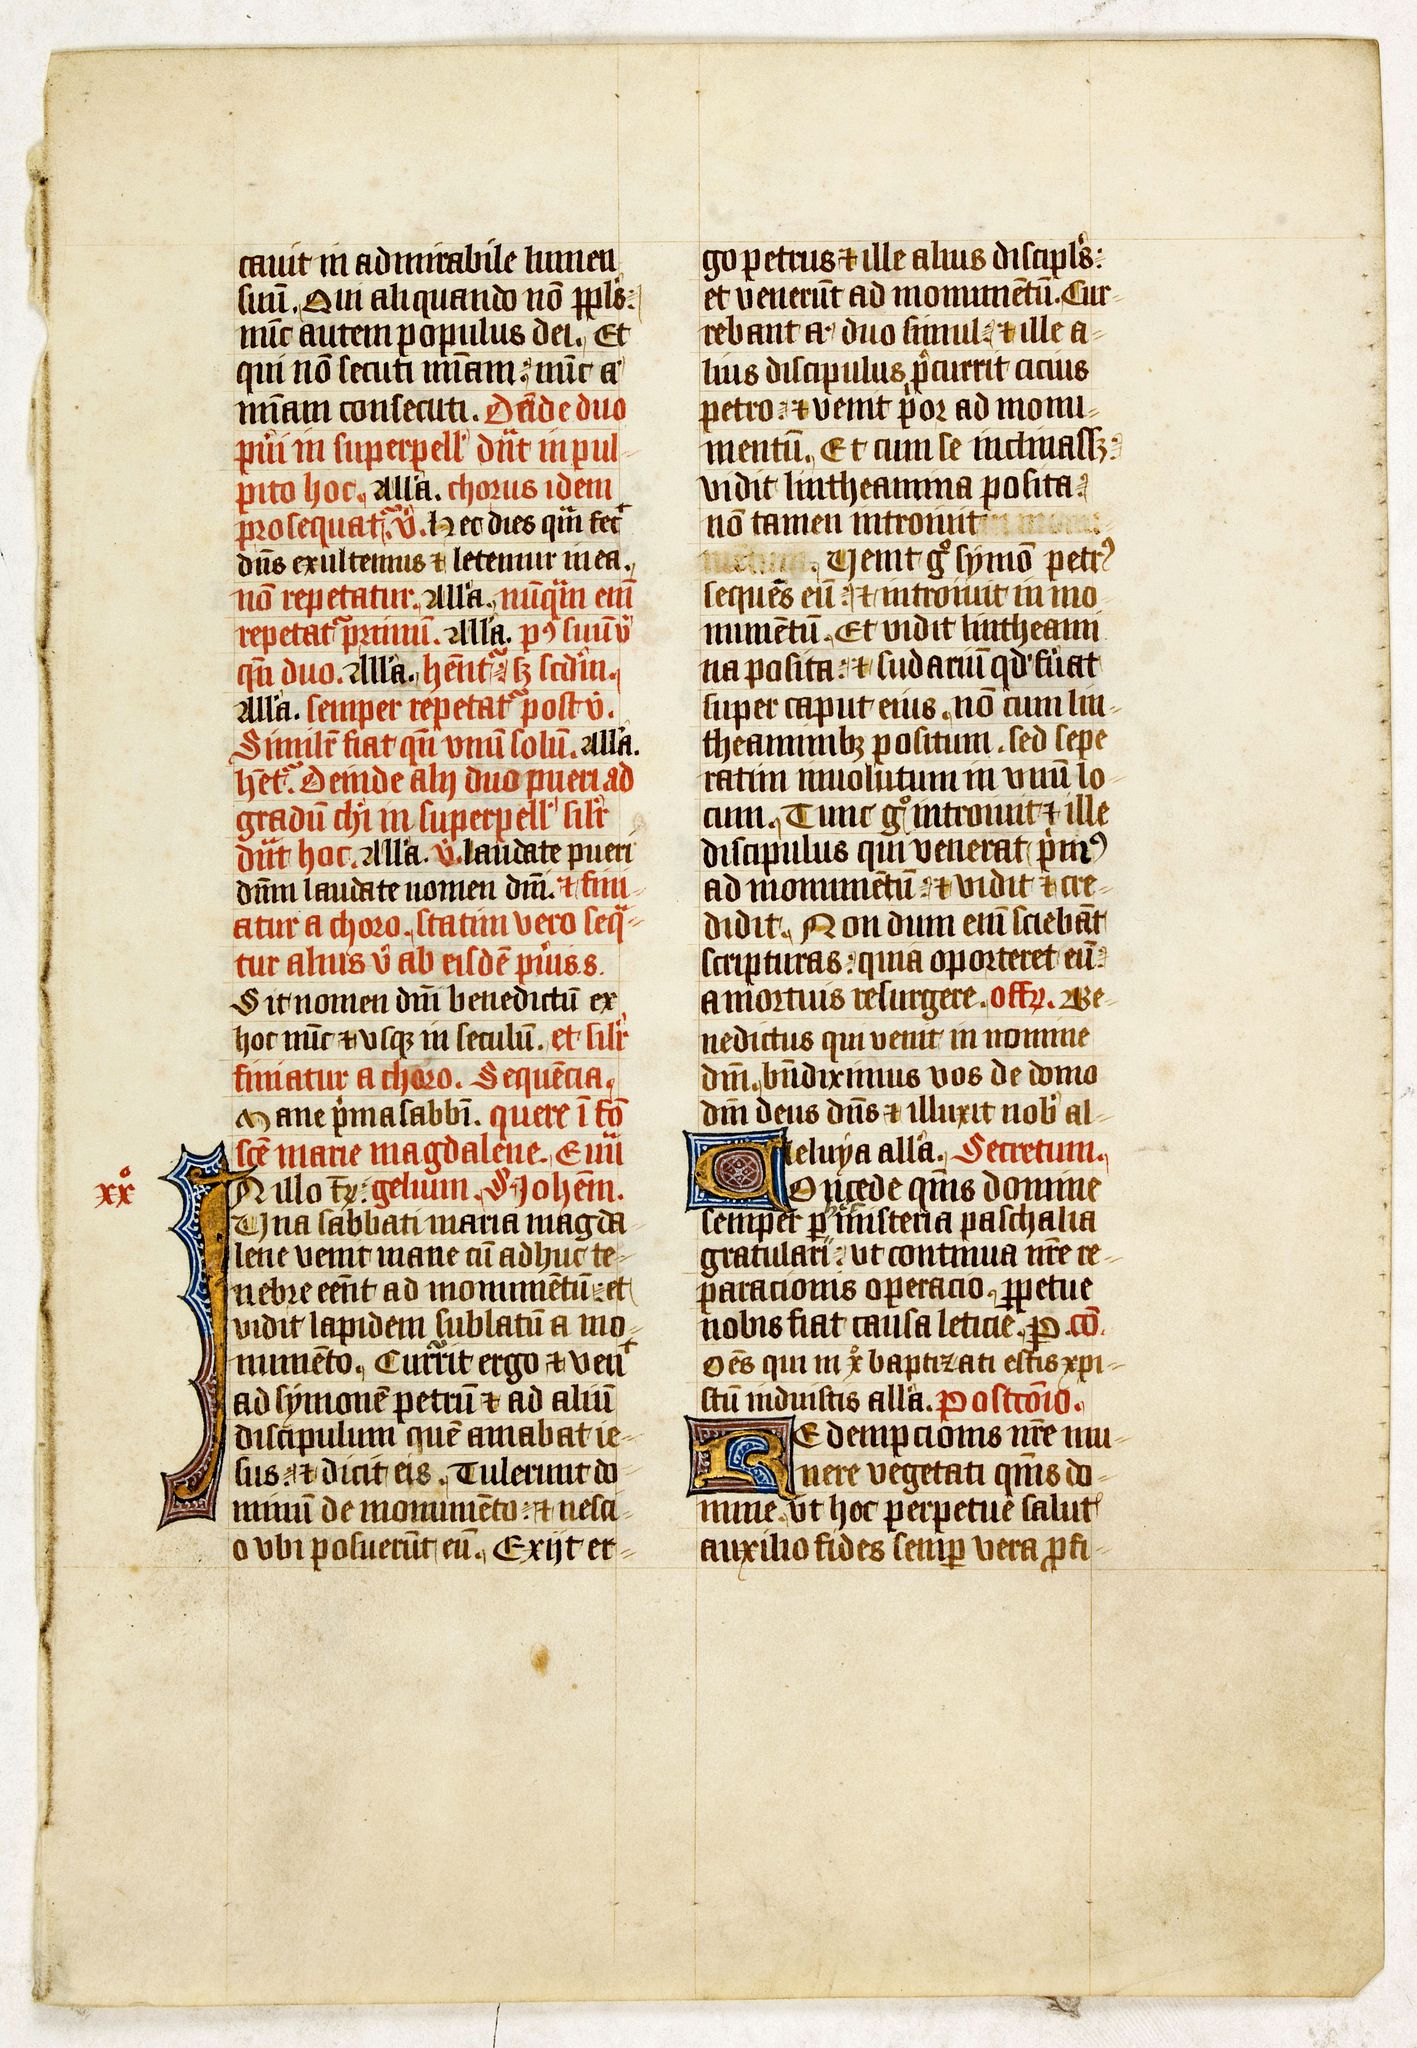 cauit in admirabile lumen
suū. Qui aliquando nō ppls:
nūc autem populus dei. Et
qui nō secuti mīam: nūc a
mīam consecuti. Deīde duo
pūi in superpell' dnt in pul-
pito hoc. Allā. chorus idem
prosequat. V̄. Hec dies quā fec
dn̄s exultemus ⁊ letemur in ea.
nō repetatur. Allā. nūquam enī
repetat primū. Allā. pꝰ suū v̄
qn̄ duo. Allā. hent sꝫ scd̄m.
Allā. semper repetat post v̄.
Similr̄ fiat qn̄ vnū solū. Allā.
het. Deinde alij duo pueri ad
gradū chi in superpell' silr̄
dnt hoc. Allā. V̄. laudate pueri
dn̄m laudate nomen dn̄i. ⁊ fini-
atur a choro. statim vero seq-
tur alius v̄ ab eisdē prius. s.
Sit nomen dn̄i benedictū ex
hoc nūc ⁊ vsqꝫ in seculū. et silr̄
finiatur a choro. Sequēcia.
Mane prima sabbī. quere ī fō
scē marie magdalene. Euā
xx°
IN illo tꝑr. gelium. S. Johem.
Una sabbati maria magda-
lene venit mane cū adhuc te-
nebre eent ad monumētū: et
vidit lapidem sublatū a mo-
numēto. Currit ergo ⁊ ven
ad symonē petrū ⁊ ad aliū
discipulum quē amabat ie-
sus: ⁊ dicit eis. Tulerunt do-
minū de monumēto: ⁊ nesci-
o vbi posuerūt eū. Exijt er-
go petrus ⁊ ille alius discipls:
et venerūt ad monumētū. Cur-
rebant a duo simul: ⁊ ille a-
lius discipulus p̄currit cicius
petro: ⁊ venit prior ad monu-
mentū. Et cum se inclinassꝫ:
vidit lintheamina posita:
nō tamen introiuit
Uenit gͦ symō petrꝰ
sequēs eū: ⁊ introiuit in mo-
numētū. Et vidit lintheami
na posita: ⁊ sudariū qd' fuat
super caput eius. nō cum lin-
theaminibꝫ positum. sed sepe
ratim inuolutum in vnū lo-
cum. Tunc gͦ introiuit ⁊ ille
discipulus qui venerat prímꝰ
ad monumētū: ⁊ vidit ⁊ cre-
didit. Non dum enī sciebāt
scripturas: quia oporteret eū:
a mortuis resurgere. offꝝ. Be-
nedictus qui venit in nomine
dn̄i. bn̄diximus vos de domo
dn̄i deus dn̄s ⁊ illuxit nob' al-
leluya allā. Secretum.
COncede qm̄s domine
semper p hec misteria paschalia
gratulari: vt continua nr̄e re-
paracionis operacio. ꝑpetue
nobis fiat causa leticie. P. cō.
Oēs qui in xͦ baptizati estis xpi-
stū induistis allā. Postcōio.
REdempcionis nr̄e mu-
nere vegetati qm̄s do-
mine. vt hoc perpetue salut
auxilio fides semꝑ vera ꝓfi-